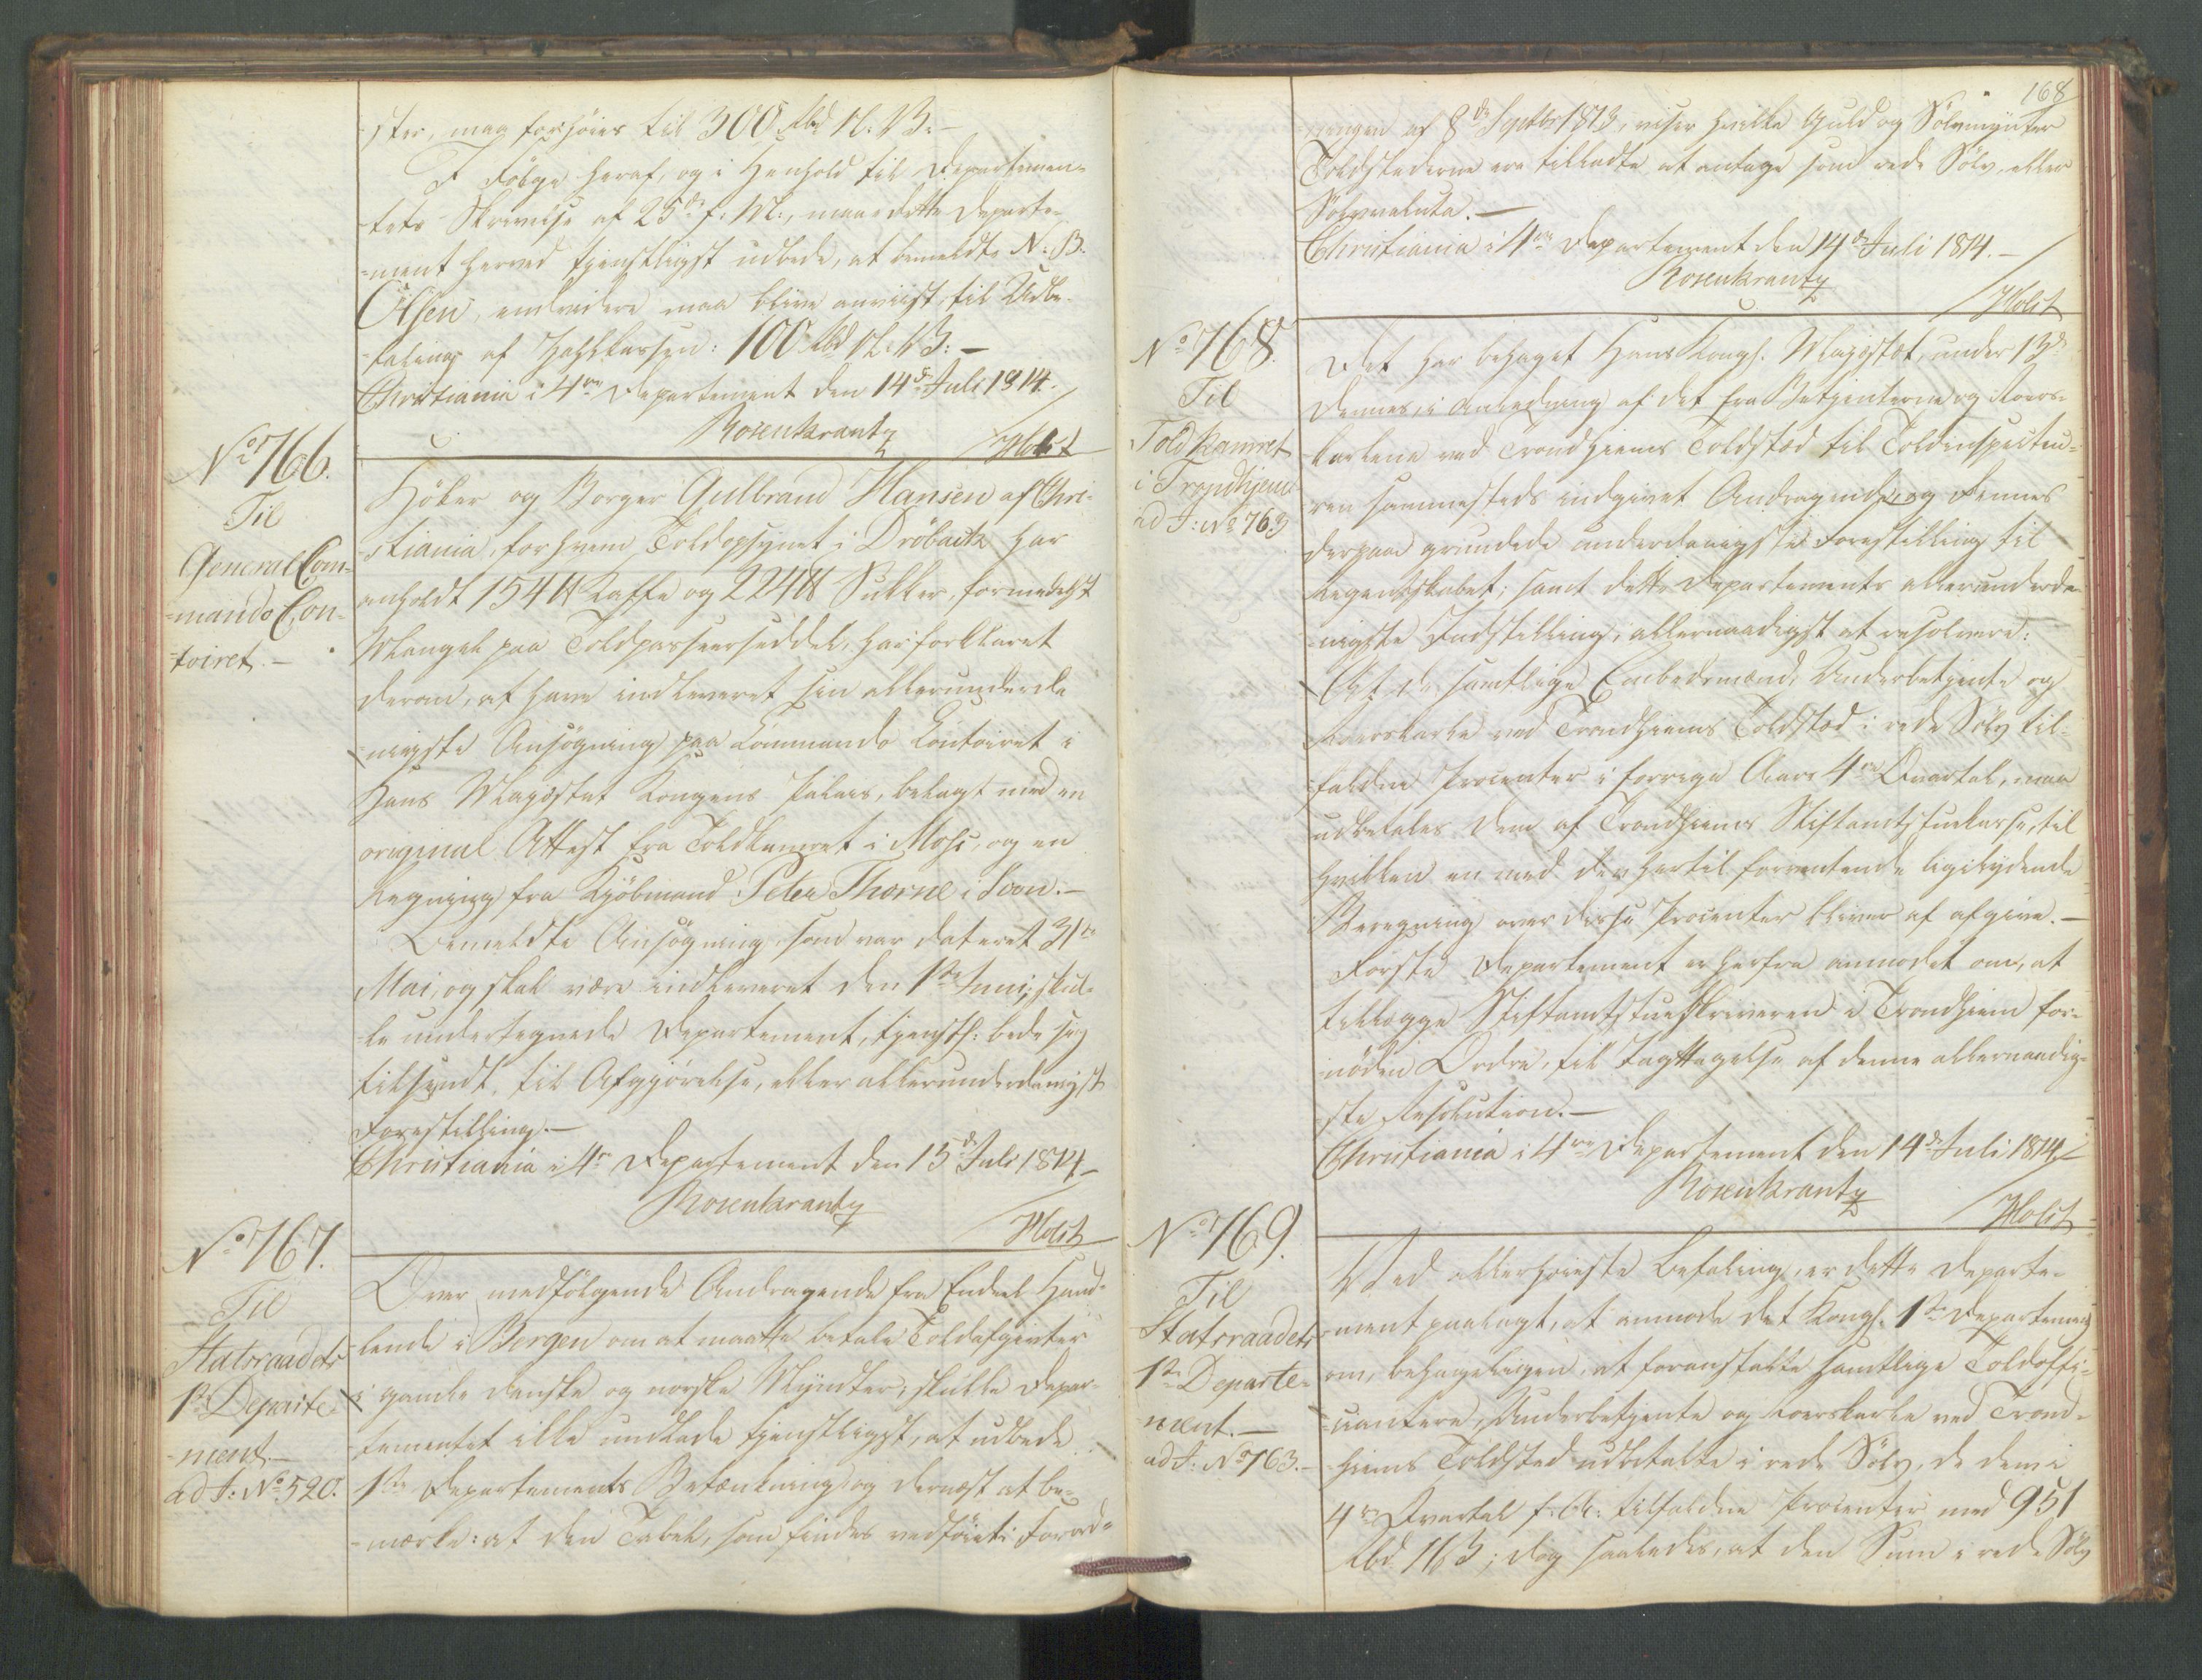 ster, maa forhöies til 300 Rbd N. V:-
I Fölge heraf, og i Henhold til Departemen-
-tets Skrivelse af 25de f: M:, maae dette Departe-
-ment herved tjenstligst udbede, at bemeldte N: B.
Olsen, endvidere maa blive anviist til Udbe-
-taling af Zahlkassen: 100 Rbd N. V:-
Christiania i 4de Departement den 14de Juli 1814.
Rosenkrantz
/Holst
No 766.
Til
General Com-
-mando Con-
-toiret.-
Höker og Borger Gulbrand Hansen af Chri-
-stiania, for hvem Toldopsynet i Dröback har
anholdt 154 ℔ Kaffe og 224 ℔ Sukker, formedelst
Mangel paa Toldpasseerseddel, har forklaret
derom, at have indleveret sin allerunderda-
-nigste Ansögning paa Commando Contoiret i
Hans Majestæt Kongens Palais, belagt med en
original Attest fra Toldkamret i Moss, og en
Regning fra Kjöbmand Peter Thorne i Soon.-
Bemeldte Ansögning, som var dateret 31te
Mai, og skal være indleveret den 1ste Juni, skul-
-le undertegnede Departement, tjenstl: bede sig
tilsendt, til Afgjörelse, eller allerunderdanigst
Forestilling.-
Christiania i 4de Departement den 15de Juli 1814-
Rosenkrantz
/Holst
No 767.
Til
Statsraadets
1ste Departe-
-ment.-
ad J: No 520.
Over medfölgende Andragende fra Endeel Hand-
-lende i Bergen om at maatte betale Toldafgivter
i gamle danske og norske Myndter, skulde Depar-
-tementet ikke undlade tjenstligst, at udbede
1ste Departements Betænkning og dernæst at be-
-mærke: at den Tabel, som findes vedföiet Forord-
168
-ningen af 8de Septbr 1813, viser hvilke Guld og Sölvmynter
Toldstederne ere tilladte at antage som rede Sölv, eller
Sölvvaluta.-
Christiania i 4de Departement den 14de Juli 1814.-
Rosenkrantz
/Holst
No 768.
Til
Toldkamret
i Trondhjem
ad J: No 763
Det har behaget Hans Kongl. Majestæt, under 13de
dennes, i Anledning af det fra Betjenterne og Roers-
karlene ved Trondhjems Toldsted til Toldinspecteu-
-ren sammesteds indgivet Andragende, og dennes
derpaa grundede underdanigste Forestilling til
Regentskabet; samt dette Departements allerunderda-
-nigste Indstilling, allernaadigst at resolvere:
At de samtlige Embedsmænd, Underbetjente og
Roerskarle ved Trondhjems Toldsted i rede Sölv til-
-faldne Procenter i forrige Aars 4de Qvartal, maa
udbetales dem af Trondhjems Stiftamtstuekasse, til
hvilken en med den hertil forventende ligelydende
Beregning over disse Procenter bliver at afgive.-
Förste Departement er herfra anmodet om, at
tillægge Stiftamtstueskriveren i Trondhjem for-
-nöden Ordre, til Iagttagelse af denne allernaadig-
-ste Resolution.-
Christiania i 4de Departement den 14de Juli 1814/
Rosenkrantz
/Holst
No 769.
Til
Statsraadets
1ste Departe-
-ment.-
ad J: No 763.-
Ved allerhöieste Befaling, er dette Departe-
-ment paalagt, at anmode det Kongl. 1ste Departement
om, behageligen, at foranstalte samtlige Toldoffi-
-cianter, Underbetjente og Roerskarle ved Trond-
-hiems Toldsted udbetalte i rede Sölv, de dem i
4de Qvartal f: A: tilfaldne Procenter med 951
Rbd. 16 ß; dog saaledes, at den Sum i rede Sölv